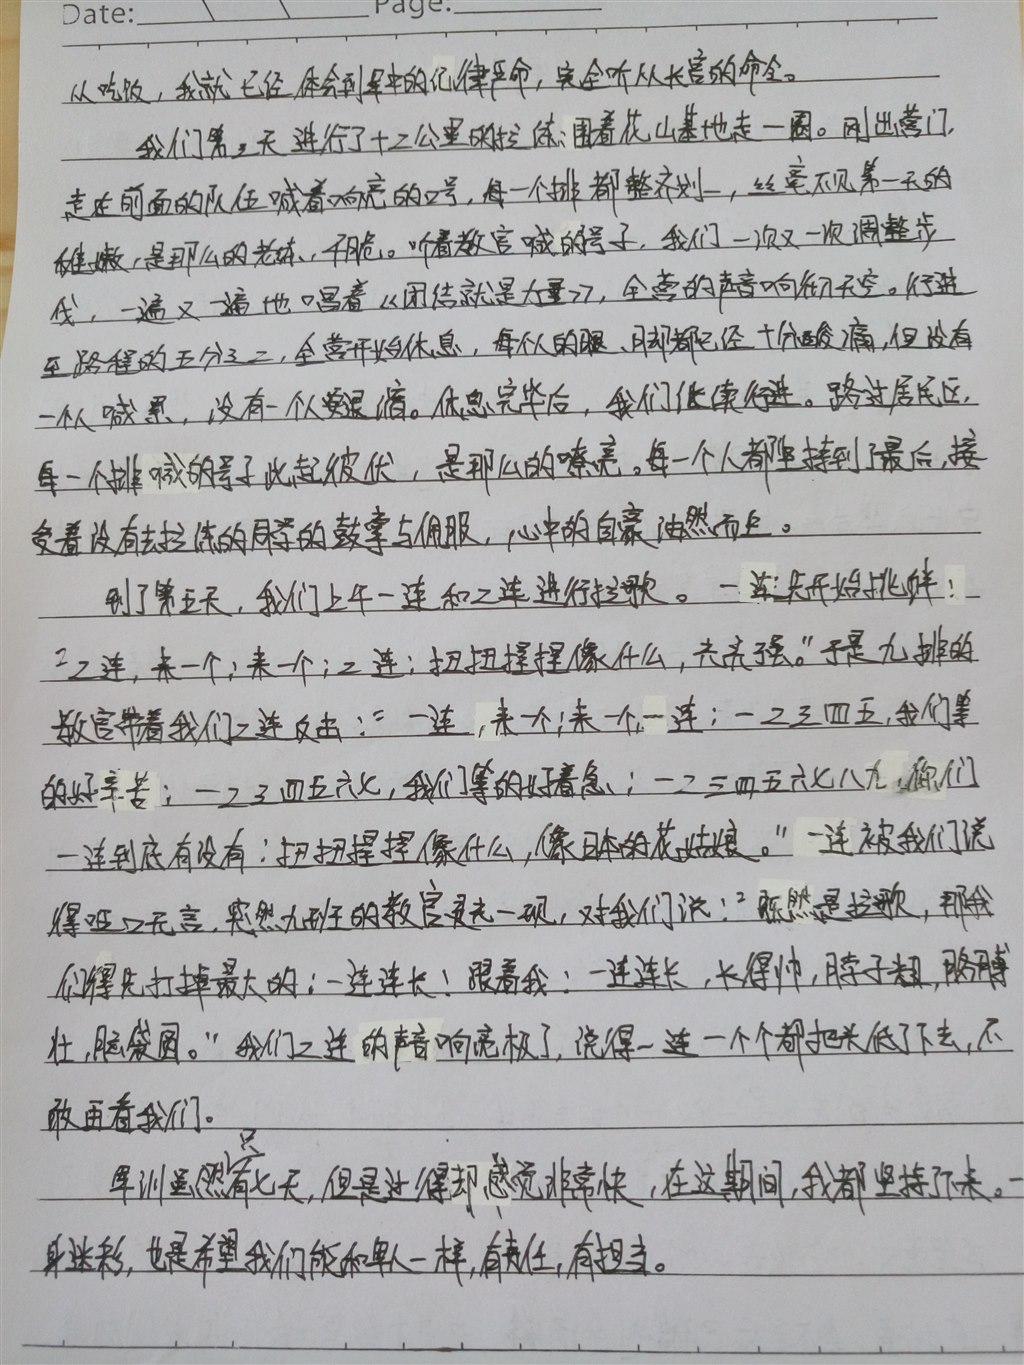 Date: Page:
从吃饭，我就已经体会到军中的纪律严命，完全听从长官的命令。
我们第二天进行了十二公里的拉练：围着花山基地走一圈。刚出营门，
走在前面的队伍喊着响亮的口号，每一个排都整齐划一，丝毫不见第一天的
稚嫩，是那么的老练、干脆。听着教官喊的号子，我们一次又一次调整步
伐，一遍又一遍地唱着《团结就是力量》，全营的声音响彻天空。行进
至路程的五分之二，全营开始休息，每个人的腿、脚都已经十分酸痛，但没有
一个人喊累，没有一个人要退缩。休息完毕后，我们继续行进。路过居民区，
每一个排喊的号子此起彼伏，是那么的嘹亮。每一个人都坚持到了最后，接
受着没有去拉练的同学的鼓掌与佩服，心中的自豪油然而生。
到了第五天，我们上午一连和二连进行拉歌。一连先开始挑衅：
“二连，来一个；来一个；二连；扭扭捏捏像什么，大家强。”于是九排的
教官带着我们二连反击：“一连，来一个；来一个，一连；一二三四五，我们等
的好辛苦；一二三四五六七，我们等的好着急；一二三四五六七八九，你们
一连到底有没有；扭扭捏捏像什么，像日本的花姑娘。”一连被我们说
得哑口无言，突然九班的教官灵光一现，对我们说：“既然是拉歌，那我
们得先打掉最大的：一连连长！跟着我：一连连长，长得帅，脖子粗，胳膊
壮，脑袋圆。”我们二连的声音响亮极了，说得一连一个个都把头低了下去，不
敢再看我们。
军训虽然只有七天，但是过得却感觉非常快，在这期间，我都坚持了下来。一
身迷彩，也是希望我们能和军人一样，有责任，有担当。